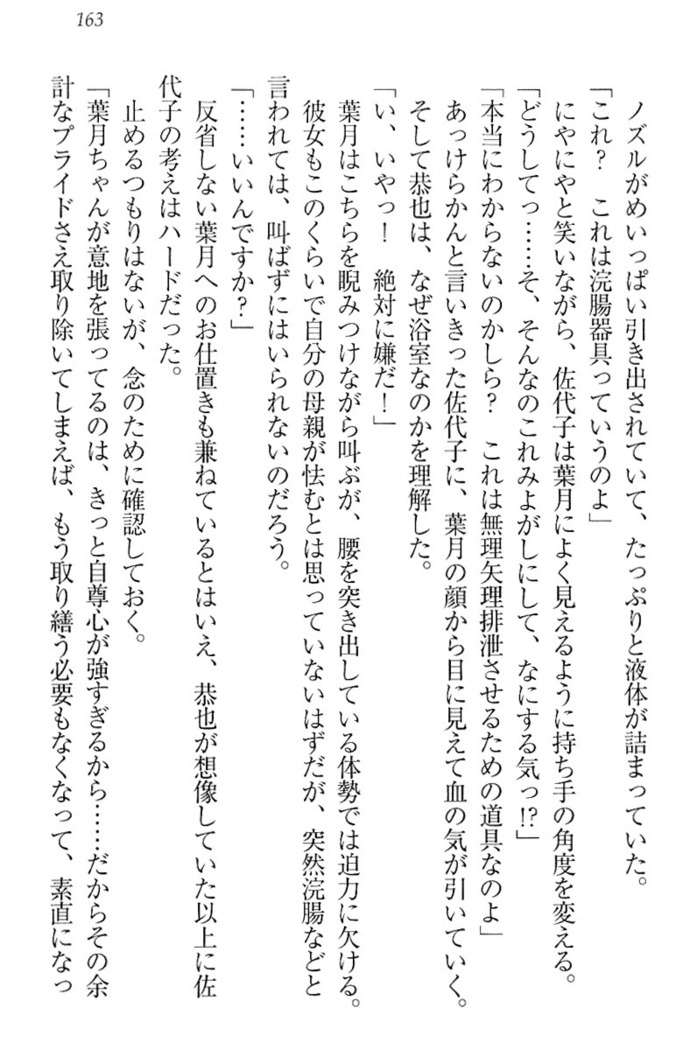 163
ノズルがめいっぱい引き出されていて、たっぷりと液体が詰まっていた。
「これ？　これは浣腸器具っていうのよ」
にやにやと笑いながら、佐代子は葉月によく見えるように持ち手の角度を変える。
「どうしてっ……そ、そんなのこれみよがしにして、なにする気っ!?」
「本当にわからないのかしら？　これは無理矢理排泄させるための道具なのよ」
あっけらかんと言いきった佐代子に、葉月の顔から目に見えて血の気が引いていく。
そして恭也は、なぜ浴室なのかを理解した。
「い、いやっ！　絶対に嫌だ！」
葉月はこちらを睨みつけながら叫ぶが、腰を突き出している体勢では迫力に欠ける。
彼女もこのくらいで自分の母親が怯むとは思っていないはずだが、突然浣腸などと
言われては、叫ばずにはいられないのだろう。
「……いいんですか？」
反省しない葉月へのお仕置きも兼ねているとはいえ、恭也が想像していた以上に佐
代子の考えはハードだった。
止めるつもりはないが、念のために確認しておく。
「葉月ちゃんが意地を張ってるのは、きっと自尊心が強すぎるから……だからその余
計なプライドさえ取り除いてしまえば、もう取り繕う必要もなくなって、素直になっ